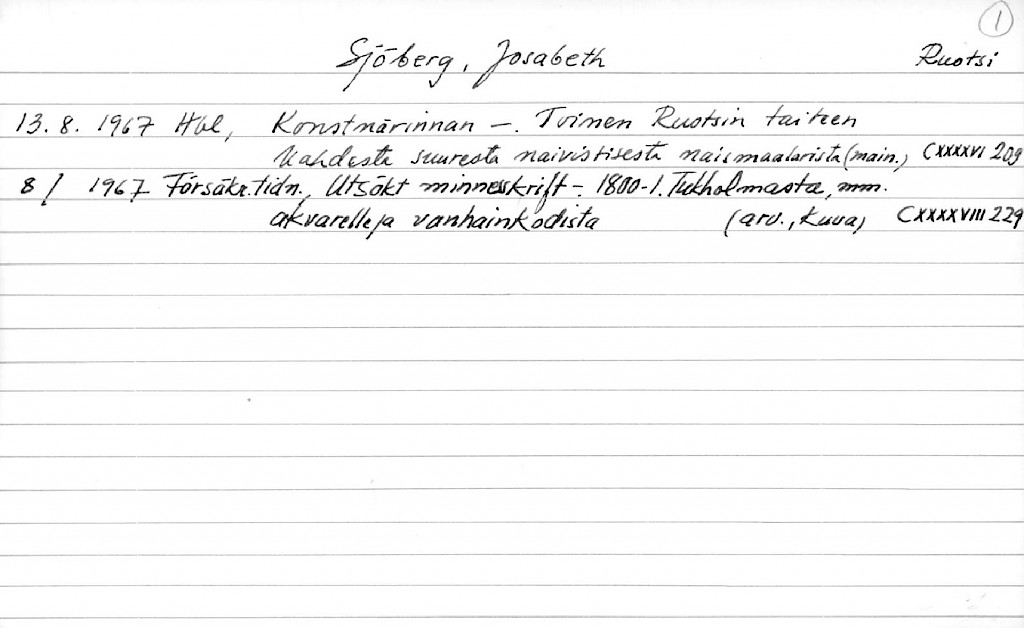 1
Sjöberg, Josabeth Ruotsi
13. 8. 1967 Hbl, Konstnärinnan –. Toinen Ruotsin taiteen
kahdesta suuresta naivistisesta naismaalarista (main.) CXXXXVI 209
8/ 1967 Försäkr.tidn., Utsökt minnesskrift – 1800-l. Tukholmasta, mm.
akvarelleja vanhainkodista (arv., kuva) CXXXXVIII 229